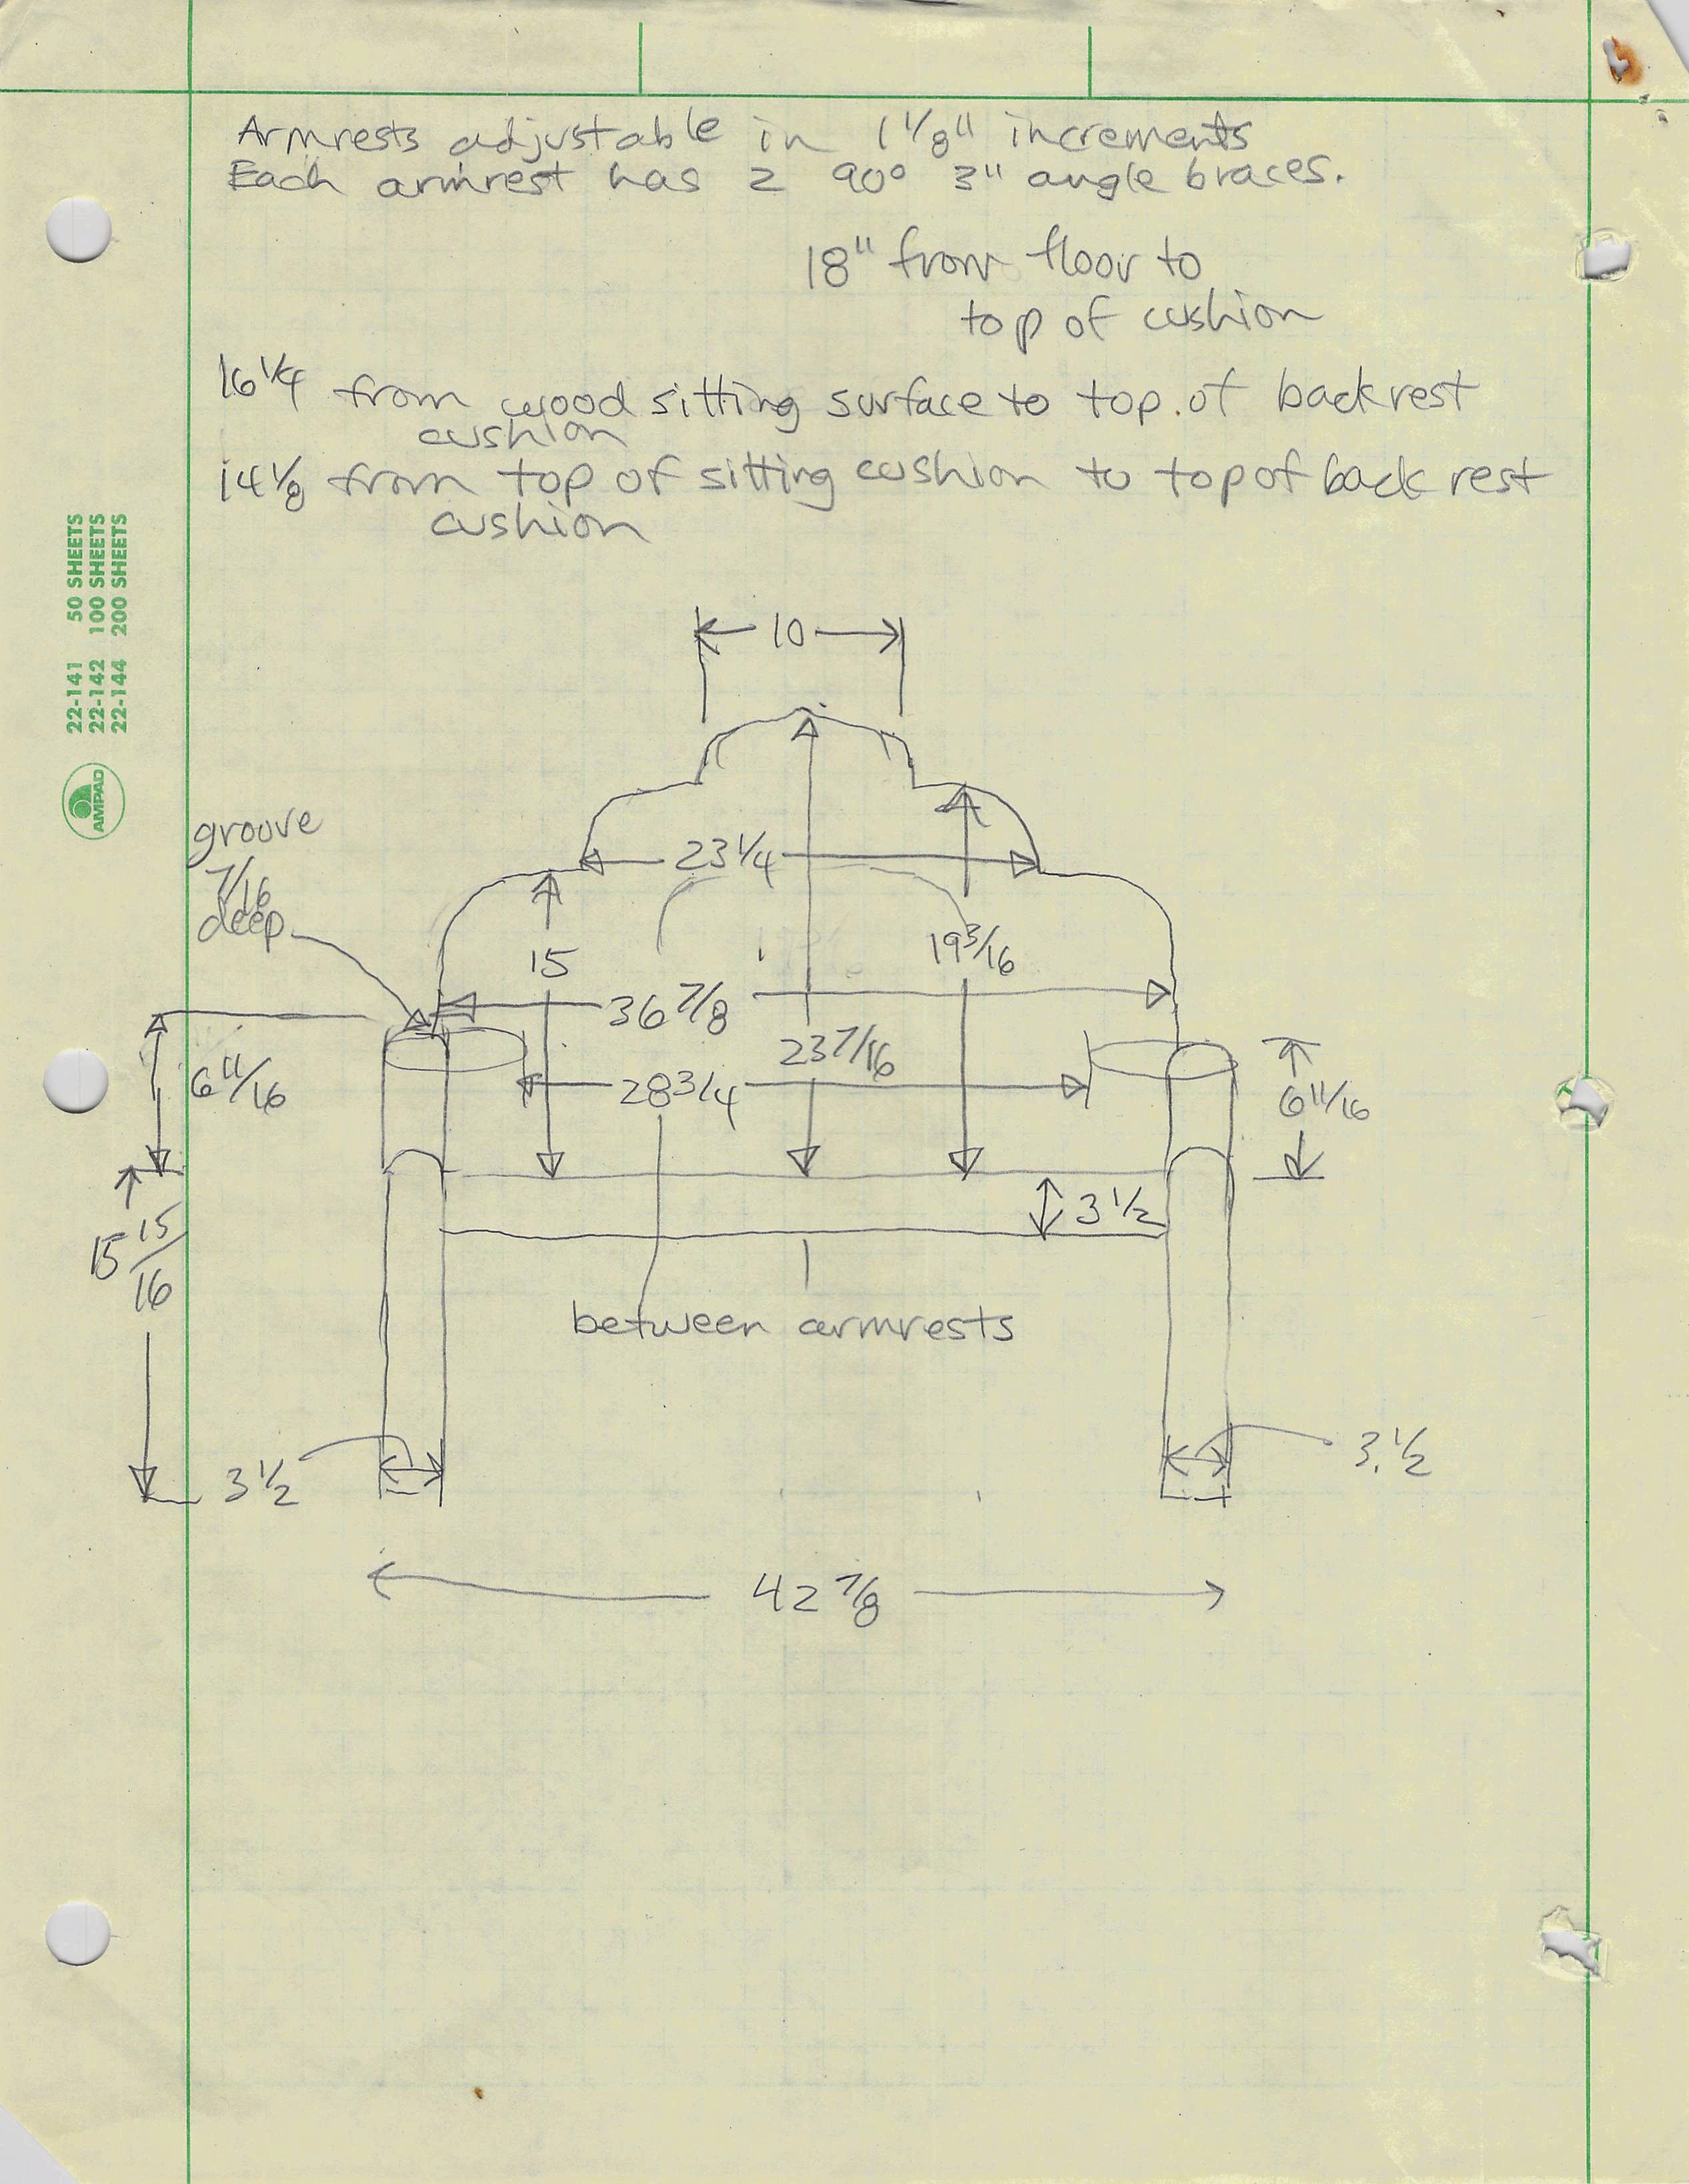 Armrests adjustable in 1 1/8" increments
Each armrest has 2 90° 3" angle braces.
18" from floor to
top of cushion
16 1/4 from wood sitting surface to top of backrest
cushion
14 1/8 from top of sitting cushion to top of back rest
cushion
22-141 50 SHEETS
22-142 100 SHEETS
22-144 200 SHEETS
AMPAD
10
groove
7/16
deep
23 1/4
15
19 3/16
36 7/8
23 7/16
28 3/4
6 11/16
6 11/16
3 1/2
15 15/16
between armrests
3 1/2
3 1/2
42 7/8